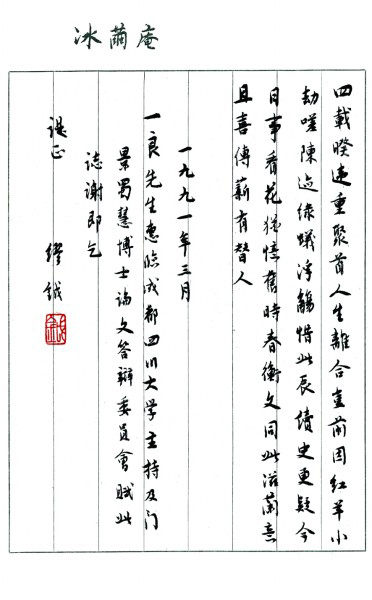 冰繭庵
四載暌違重聚首人生離合豈前因紅羊小
劫嗟陳迹綠蟻浮觴惜此辰讀史更疑今
日事看花猶憶舊時春衡文同此滋蘭意
且喜傳薪有替人
一九九一年三月
一良先生惠臨成都四川大学主持及门
景蜀慧博士論文答辯委員會賦此
誌謝即乞
諟正 繆鉞